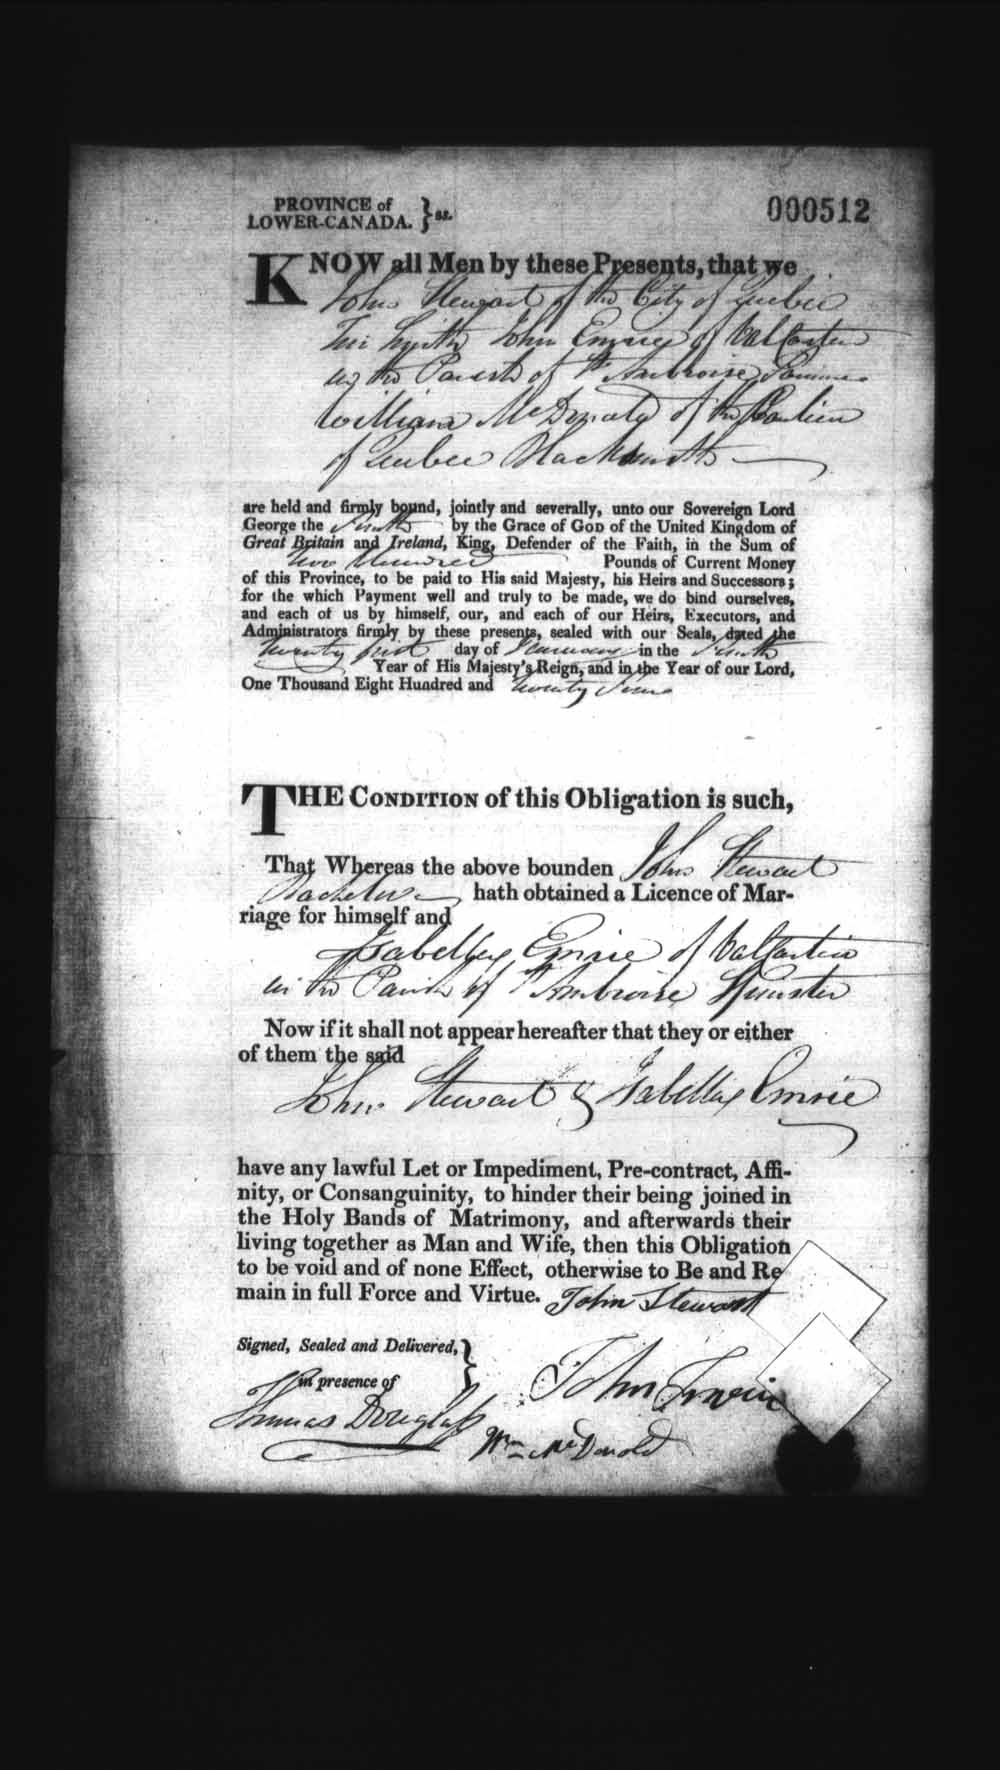 PROVINCE of
LOWER-CANADA. } ss.
000512
KNOW all Men by these Presents, that we
John Stewart of the City of Quebec
Tin Smith John Emrie of Valcartier
in the Parish of St Ambroise Farmer
William McDonald of the
of Quebec Blacksmith
are held and firmly bound, jointly and severally, unto our Sovereign Lord
George the Fourth by the Grace of GOD of the United Kingdom of
Great Britain and Ireland, King, Defender of the Faith, in the Sum of
Two Hundred Pounds of Current Money
of this Province, to be paid to His said Majesty, his Heirs and Successors;
for the which Payment well and truly to be made, we do bind ourselves,
and each of us by himself, our, and each of our Heirs, Executors, and
Administrators firmly by these presents, sealed with our Seals, dated the
twenty first day of January in the Fourth
Year of His Majesty's Reign, and in the Year of our Lord,
One Thousand Eight Hundred and twenty Four
THE CONDITION of this Obligation is such,
That Whereas the above bounden John Stewart
Bachelor hath obtained a Licence of Mar-
riage for himself and
Isabella Emrie of Valcartier
in the Parish of St Ambroise Spinster
Now if it shall not appear hereafter that they or either
of them the said
John Stewart & Isabella Emrie
have any lawful Let or Impediment, Pre-contract, Affi-
nity, or Consanguinity, to hinder their being joined in
the Holy Bands of Matrimony, and afterwards their
living together as Man and Wife, then this Obligation
to be void and of none Effect, otherwise to Be and Re
main in full Force and Virtue. John Stewart
Signed, Sealed and Delivered, }
in presence of
John Irwin
Thomas Douglass
Wm McDonald